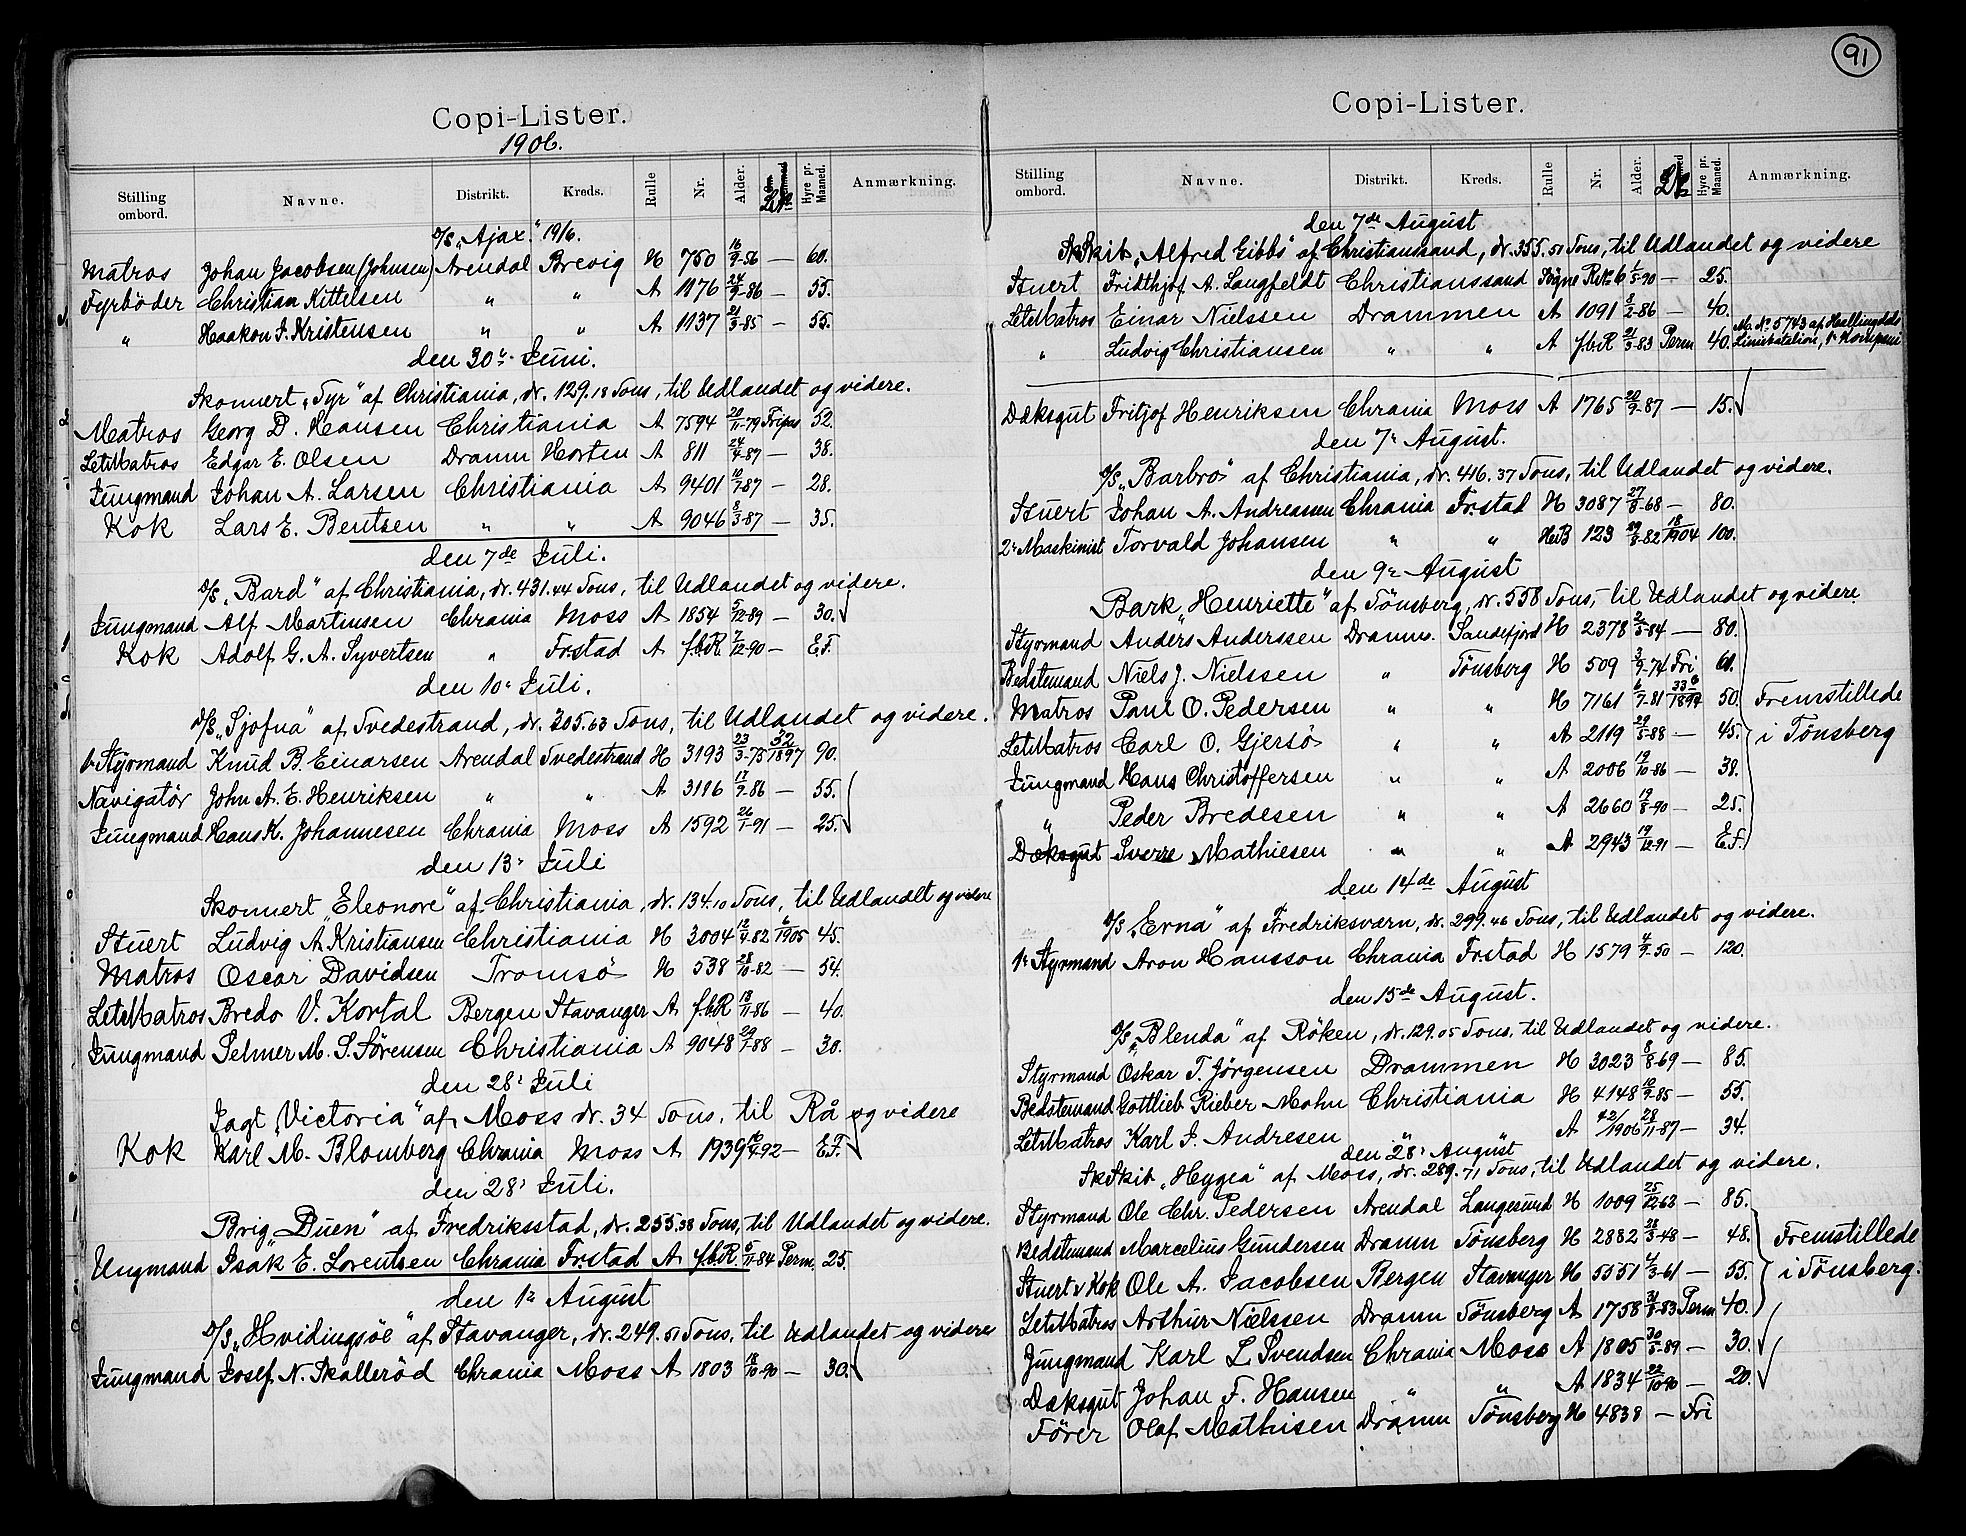 91
Copi-Lister.
1906.
Stilling ombord. Navne. Distrikt. Kreds. Rulle Nr. Alder. Hyre pr. Maaned. Anmærkning.
D/S "Ajax." 19/6.
Matros Johan Jacobsen (Johnsen) Arendal Brevig H 750 16/9-56 — 60.
Fyrbøder Christian Kittelsen " " A 1176 24/9-86 — 55.
" Haakon J. Kristensen " " A 1137 21/3-85 — 55.
den 30te Juni.
Skonnert "Tyr" af Christiania, dr. 129.18 Tons, til Udlandet og videre.
Matros Georg D. Hansen Christiania A 7594 20/11-79 Fripas 52.
LetMatros Edgar E. Olsen Dramm Horten A 811 24/4-87 — 38.
Jungmand Johan A. Larsen Christiania A 9401 10/1-87 — 28.
Kok Lars E. Bentsen " " A 9046 8/3-87 — 35.
den 7de Juli.
D/S "Bard" af Christiania, dr. 431.44 Tons, til Udlandet og videre.
Jungmand Alf Martinsen Chrania Moss A 1854 5/12-89 — 30.
Kok Adolf G. A. Syvertsen " Fr.stad A f.b.R. 7/12-90 — E.F.
den 10de Juli.
D/S "Sjofna" af Tvedestrand, dr. 205.63 Tons, til Udlandet og videre.
1ste Styrmand Knud B. Einarsen Arendal Tvedestrand H 3193 23/3-75 32/1897 90.
Navigatør John A. E. Henriksen " " A 3116 17/9-86 — 55.
Jungmand Hans K. Johannesen Chrania Moss A 1592 26/1-91 — 25.
den 13de Juli
Skonnert "Eleonore" af Christiania, dr. 134.10 Tons, til Udlandet og videre
Stuert Ludvig A. Kristiansen Christiania H 3004 12/4-82 6/1905 45.
Matros Oscar Davidsen Tromsø H 538 28/10-82 — 54.
LetMatros Bredo V. Kortal Bergen Stavanger A f.b.R 18/11-86 — 40.
Jungmand Selmer M. S. Sørensen Christiania A 9048 29/1-88 — 30.
den 28de Juli
Jagt "Victoria" af Moss dr. 34 Tons, til Rå og videre
Kok Karl M. Blomberg Chrania Moss A 1939 16/4-92 — E.F.
den 28de Juli.
Brig "Duen" af Fredriksstad, dr. 255.38 Tons, til Udlandet og videre.
Ungmand Isak E. Lorentsen Chrania Fr.stad A f.b.R. 5/11-84 Perm. 25.
den 1ste August
D/S "Hvidingsøe" af Stavanger, dr. 249.51 Tons, til Udlandet og videre
Jungmand Josef N. Skallerød Chrania Moss A 1803 18/10-90 — 30.
Copi-Lister.
Stilling ombord. Navne. Distrikt. Kreds. Rulle Nr. Alder. Hyre pr. Maaned. Anmærkning.
den 7de August
SkSkib "Alfred Gibbs" af Christianssand, dr. 355.51 Tons, til Udlandet og videre
Stuert Fridthjof A. Langfeldt Christianssand Søgne 6 1/5-90 — 25.
LetMatros Einar Nielssen Drammen A 1091 8/2-86 — 40.
" Ludvig Christiansen " " A f.b.R 21/3-83 Perm 40. M. No 5743 af Hallingdals Liniebatalion, 1ste Kompani
Dæksgut Fritjof Henriksen Chrania Moss A 1765 20/9-87 — 15.
den 7de August.
D/S "Barbro" af Christiania, dr. 416.37 Tons, til Udlandet og videre.
Stuert Johan A. Andreassen Chrania Fr.stad H 3087 27/8-68 — 80.
2den Maskinist Torvald Johansen " " HdB 123 29/8-82 18/1904 100.
den 9de August
Bark "Henriette" af Tønsberg, dr. 558 Tons, til Udlandet og videre.
Styrmand Anders Anderssen Dramm. Sandefjord H 2378 2/5-84 — 80.
Bedstemand Niels J. Nielssen " Tønsberg H 509 3/9-74 Fri 60.
Matros Paul O. Pedersen " " H 7161 6/7-81 50. Fremstillede
LetMatros Carl O. Gjersø " " A 2119 29/5-88 — 45. i Tønsberg
Jungmand Hans Christoffersen " " A 2006 19/10-86 — 38.
" Peder Bredesen " " A 2660 19/8-90 — 25.
Dæksgut Sverre Mathiesen " " A 2943 19/12-91 — E.F.
den 14de August
D/S "Erna" af Fredriksværn, dr. 299.46 Tons, til Udlandet og videre.
1ste Styrmand Aron Hansson Chrania Fr.stad H 1579 4/9-50 — 120.
den 15de August.
D/S "Blenda" af Røken, dr. 129.05 Tons, til Udlandet og videre.
Styrmand Oskar T. Jørgensen Drammen H 3023 8/8-69 — 85.
Bedstemand Gottlieb Rieber Mohn Christiania H 4148 10/9-85 — 55.
LetMatros Karl J. Andresen " A 42/1906 28/11-87 — 34.
den 28de August
SkSkib "Hygea" af Moss, dr. 289.71 Tons, til Udlandet og videre.
Styrmand Ole Chr. Pedersen Arendal Langesund H 1009 25/12-62 — 85.
Bedstemand Marcelius Gundersen Dramm Tønsberg H 2832 28/3-48 — 48. Fremstillede
Stuert v Kok Ole A. Jacobsen Bergen Stavanger H 5551 4/3-61 — 55. i Tønsberg.
LetMatros Arthur Nielssen Dramm Tønsberg A 1758 31/8-83 Perm 40.
Jungmand Karl L. Svendsen Chrania Moss A 1805 30/5-89 — 30.
Dæksgut Johan F. Hansen " " A 1834 22/10-90 — 20.
Fører Olaf Mathisen Dramm Tønsberg H 4838 — Fri